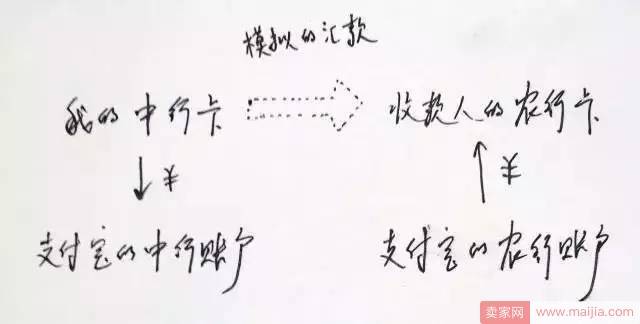 模拟的汇款
我的中行卡
收款人的农行卡
¥
¥
支付宝的中行账户
支付宝的农行账户
卖家网 www.maijia.com